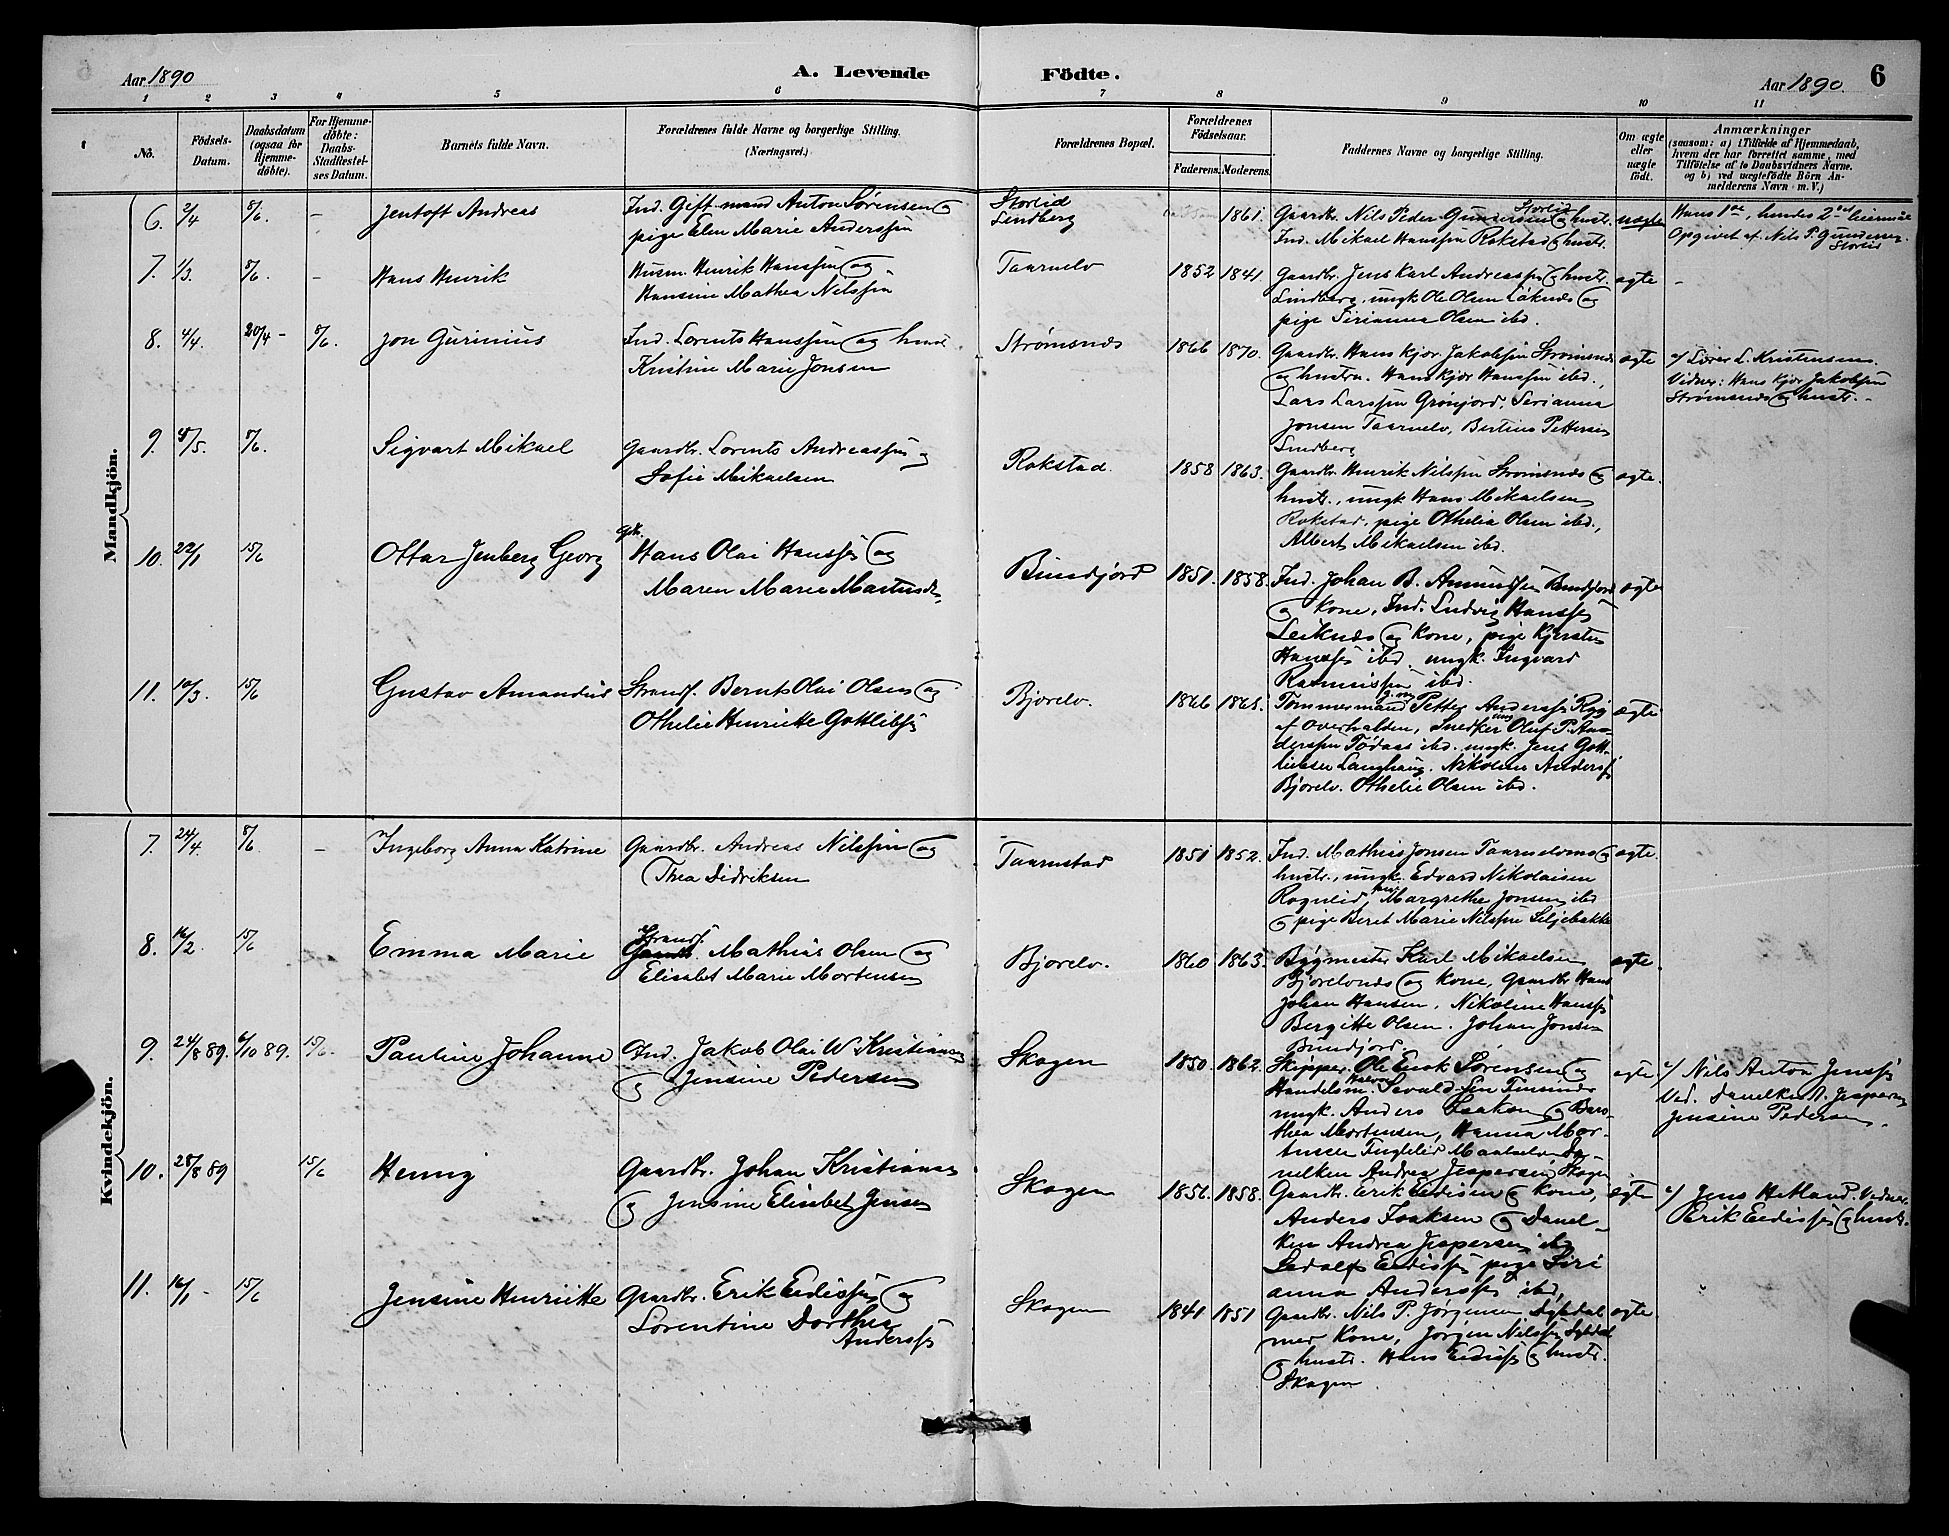 Aar 1890
A. Levende Födte.
Aar 1890.
6
1 2 3 4 5 6 7 8 9 10 11
No.
Födsels-Datum.
Daabsdatum (ogsaa for Hjemme-døbte).
For Hjemme-døbte: Daabs-Stadfæstel-ses Datum.
Barnets fulde Navn.
Forældrenes fulde Navne og borgerlige Stilling.
(Næringsvei.)
Forældrenes Bopæl.
Forældrenes Födselsaar.
Faderens. Moderens.
Faddernes Navne og borgerlige Stilling.
Om ægte eller uægte født.
Anmærkninger
(saasom: a) i Tilfælde af Hjemmedaab, hvem der har forrettet samme, med Tilföielse af to Daabsvidners Navne. og b) ved uægtefødte Börn Anmelderens Navn m. V.)
Mandkjön.
6. 2/4 8/6. – Jentoft Andreas
Ind. Gift mand Anton Sörensen og
pige Elen Marie Anderssen
Storlid
Lindberg
1861.
Gaardbr. Nils Peder Gundersen Storlid og hustr.
Ind. Mikael Hanssen Rokstad og hustr.
uægte
Hans 1ste, hendes 2det leiermaal
Opgivet af Nils P. Gundersen
Storlid
7. 1/3. 8/6. – Hans Henrik
Husm. Henrik Hanssen og
Hansine Mathea Nilssen
Taarnelv
1852 1841
Gaardbr. Jens Karl Andreassen og hustr.
Lindberg, ungk. Ole Olsen Løknes og
pige Sirianna Olsen ibd.
ægte –
8. 4/4. 20/4 – 8/6. Jon Gurinius
Ind. Lorents Hanssen og hustr.
Kristine Marie Jonsen
Strømsnes
1866 1870.
Gaardbr. Hans Kjør. Jakobsen Strømsnes
og hustru. Hans Kjør Hanssen ibd.,
Lars Larssen Grønjord, Serianna
Jonsen Taarnelv, Bertine Pettersen
Lindberg
ægte
a/ Lærer L. Kristensen.
Vidner: Hans Kjør Jakobsen
Strømsnes og hustr. –
9. 8/5. 8/6. Sigvart Mikael
Gaardbr. Lorents Andreassen og
Sofie Mikaelsen
Rokstad.
1858 1863.
Gaardbr. Henrik Nilssen Strømsnes og
hustr., ungk Hans Mikaelsen
Rokstad, pige Othelia Olsen ibd.,
Albert Mikaelsen ibd.
ægte.
10. 22/1 15/6 Ottar Jenberg Georg
Gbr. Hans Olai Hanssen og
Maren Marie
Bundfjord
1851. 1858.
Ind. Johan B. Amundsen Bundfjord
og Kone, Ind. Ludvig Hanssen
Leiknes og Kone, pige Kjersten
Hanssen ibd. ungk. Ingvard
Rasmussen ibd.
ægte
11. 10/3. 15/6 Gustav Amandus
Strands. Bernt Olai Olsen og
Othelie Henriette Gottliebsen
Bjorelv.
1866 1865.
Tømmermand Petter Anderssen Ryg
af Overhalden, Snedker Oluf P. An-
derssen Tødaas ibd. ungk. Jens Gott-
liebsen Langhaug. Nikoline Anderssen
Bjorelv. Othelie Olsen ibd.
ægte
Kvindekjön.
7. 24/4. 8/6. – Ingeborg Anna Katrine
Gaardbr. Andreas Nilssen og
Thea Didriksen
Taarnstad
1851 1852.
Ind. Mathias Jonsen Taarnelvnes og
hustr., ungk. Edvard Nikolaisen
Rognlid, Margrethe Jonsen ibd
og pige Beret Marie Nilssen Seljebakke
ægte.
8. 16/2. 15/6 Emma Marie
Strands. Mathias Olsen og
Elisabet Marie Mortensen
Bjorelv.
1860 1863.
Bygmester Karl Mikaelsen
Bjorelvnes og Kone, Gaardbr Hans
Johan Hansen, Nikoline Hanssen
Bergitte Olsen. Johan Jonsen
Bundfjord.
ægte.
9. 24/8 89. 6/10 89. 15/6. Pauline Johanne
Ind. Jakob Olai W Kristiansen
og Jensine Pedersen
Skogen
1850. 1862.
Skipper Ole Enok Sørensen og
Handelsm. Sevaldsen Finsnes
ungk. Anders Isaksen og Bero-
thea Mortensen, Hanna Mor-
tensen Fuglelid Maalselv, Da-
nelken Andrea Jespersen, Skogen
ægte.
a/ Nils Anton Jenssen
Vid. Danelke A. Jespersen
Jensine Pedersen.
10. 28/8 89 15/6 Henny
Gaardbr. Johan Kristiansen
og Jensine Elisabet Jensen
Skogen
1856. 1858.
Gaardbr. Erik Eedissen og Kone,
Anders Isaksen og Danel-
ken Andrea Jespersen ibd
Sedolf Eedissen pige Siri-
anna Anderssen ibd,
ægte
a/ Jens Hetland. Vidner
Erik Eedissen og hustr.
11. 16/1 – 15/6 Jensine Henriette
Gaardbr. Erik Eedissen og
Lorentine Dorthea
Anderssen
Skogen
1841 1851
Gaardbr. Nils P. Jørgensen
med Kone, Jørgen Nilssen
og hustr. Hans Eedissen og hustr.
Skogen
ægte.